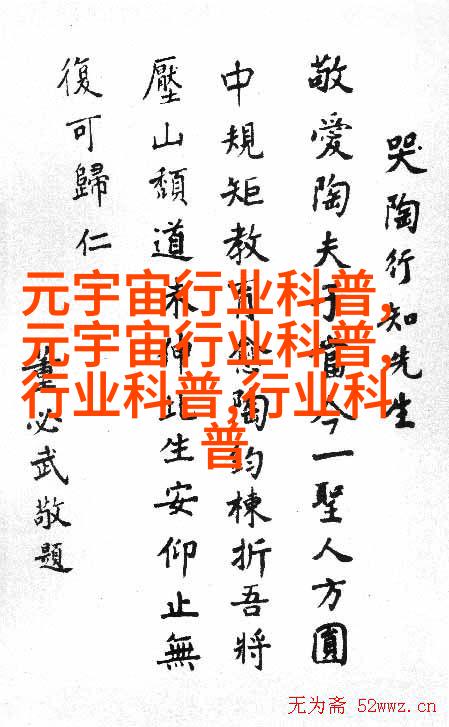 哭陶行知先生
敬愛陶夫子當今一聖人方圓
中規矩教育愈陶鈞棟折吾將
壓山頹道未伸此生安仰止無
復可歸仁
董必武敬題
元宇宙行业科普,
元宇宙行业科普,
行业科普,行业科
普
无为斋 52wwz.cn